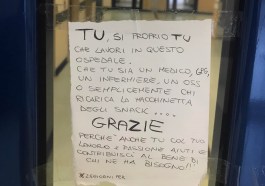 TU, SI PROPRIO TU
CHE LAVORI IN QUESTO
OSPEDALE.
CHE TU SIA UN MEDICO,
UN INFERMIERE, UN OSS
O SEMPLICEMENTE CHI
RICARICA LA MACCHINETTA
DEGLI SNACK....
GRAZIE
PERCHÈ ANCHE TU COL TUO
LAVORO E PASSIONE AIUTI E
CONTRIBUISCI AL BENE DI
CHI NE HA BISOGNO!!